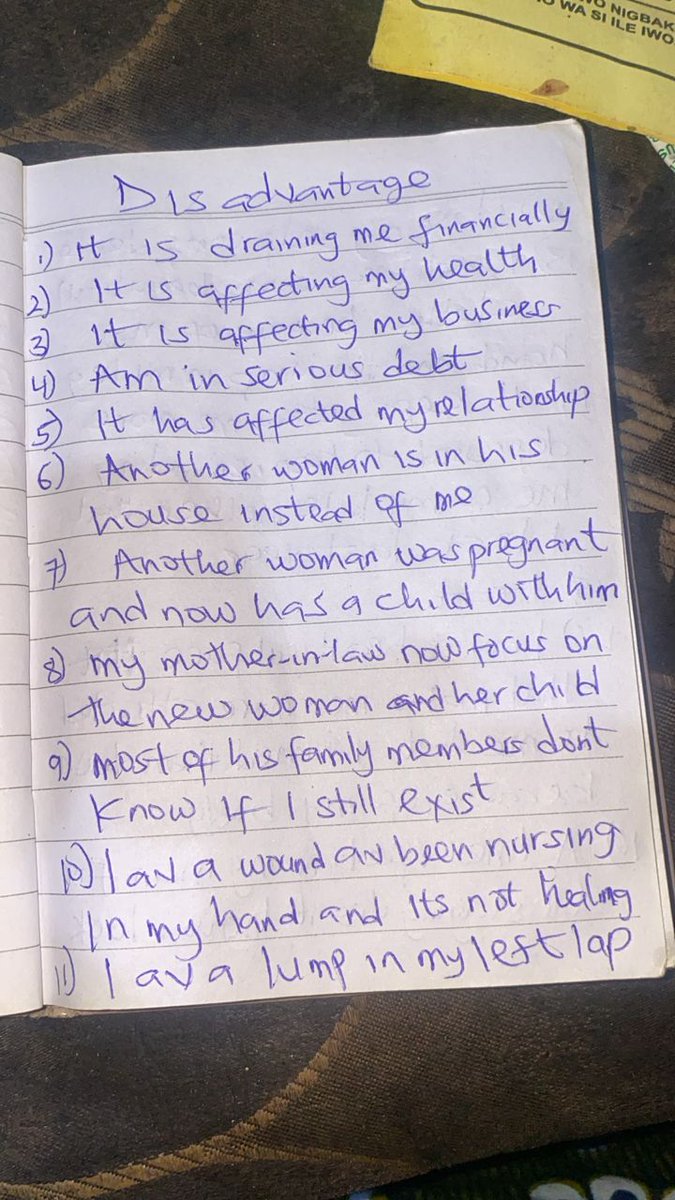 NIGBAK
WA SI ILE IWO
Disadvantage
1) It is draining me financially
2) It is affecting my health
3) It is affecting my business
4) Am in serious debt
5) It has affected my relationship
6) Another woman is in his
house instead of me
7) Another woman was pregnant
and now has a child with him
8) my mother-in-law now focus on
the new woman and her child
9) most of his family members dont
know if I still exist
10) I av a wound av been nursing
In my hand and its not healing
11) I av a lump in my left lap